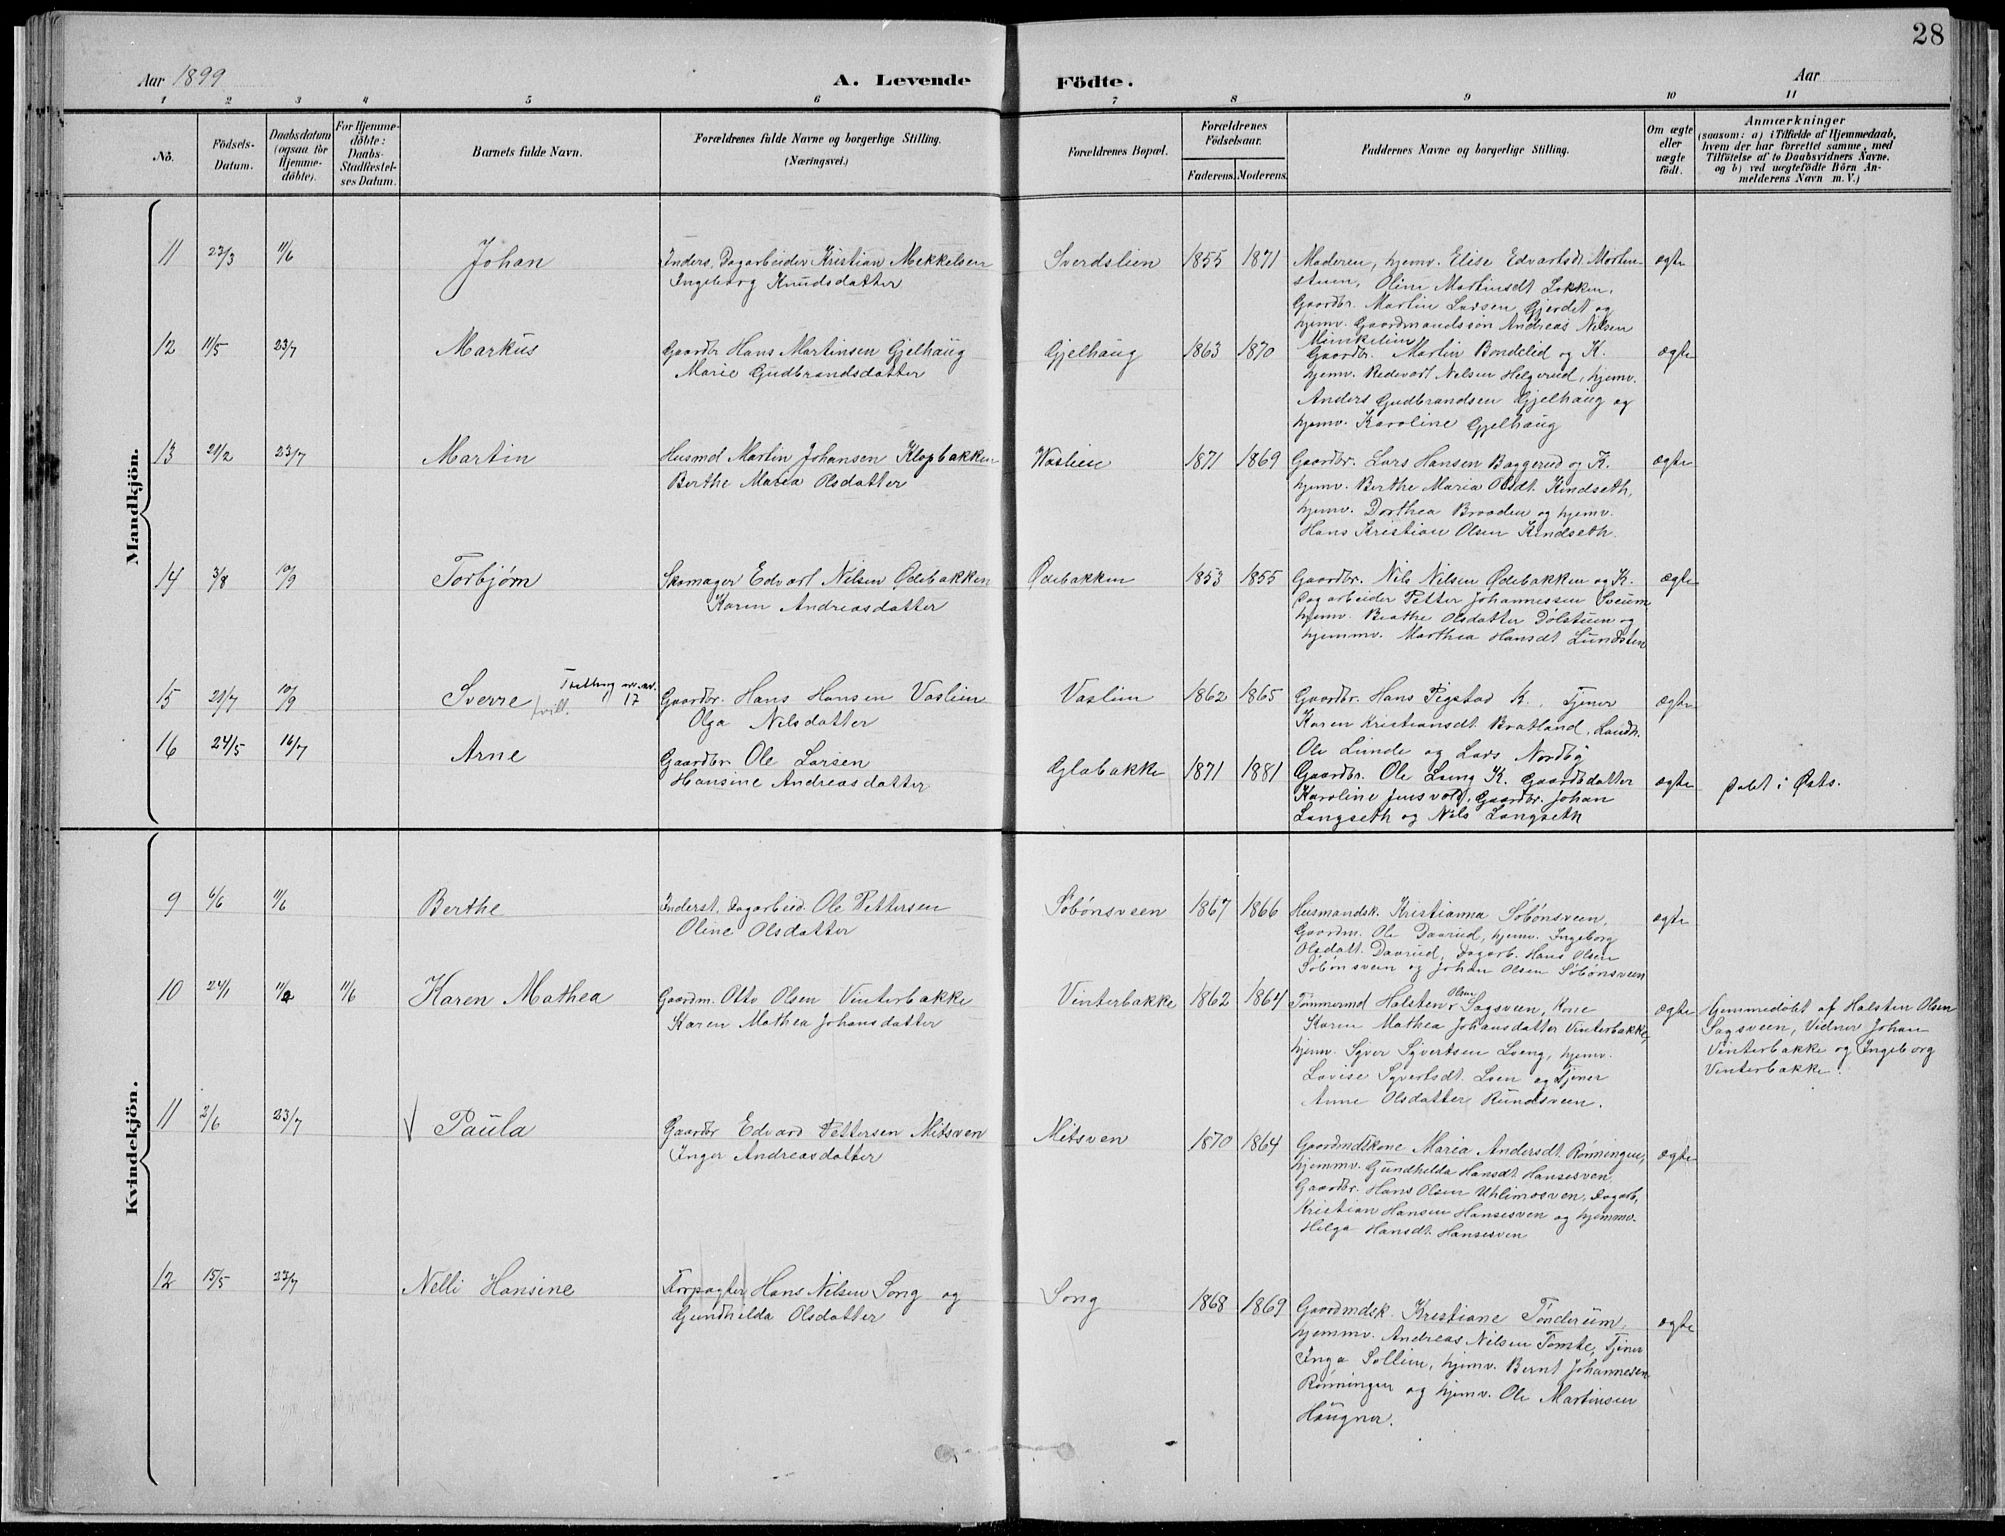 28
Aar 1899
A. Levende Födte.
Aar
1 2 3 4 5 6 7 8 9 10 11
No.
Födsels-Datum.
Daabsdatum (ogsaa for Hjemme-döbte).
For Hjemme-döbte: Daabs-Stadfæstel-ses Datum.
Barnets fulde Navn.
Forældrenes fulde Navne og borgerlige Stilling.
(Næringsvei.)
Forældrenes Bopæl.
Forældrenes Födselsaar.
Faderens. Moderens.
Faddernes Navne og borgerlige Stilling.
Om ægte eller uægte födt.
Anmærkninger
(saasom: a) i Tilfælde af Hjemmedaab,
hvem der har forrettet samme, med
Tilföielse af to Daabsvidners Navne.
og b) ved uægtefödte Börn An-
melderens Navn m. V.)
Mandkjön.
11 23/3 11/6 Johan
Inders. Dagarbeider Kristian Mekkelsen
Ingeborg Knudsdatter
Sverdslien 1855 1871
Moderen, hjemv. Elise Edvartsdt. Morten-
stuen, Oline Martinsdt Løkken,
Gaardbr. Martin Larsen Gjerdet og
hjemv. Gaardmandssøn Andreas Nilsen
ægte
12 11/5 23/7 Markus
Gaardbr Hans Martinsen Gjelhaug
Marie Gudbrandsdatter
Gjelhaug 1863 1870
Gaardbr. Martin Bondelid og K.
hjemv. Redevart Nelsen Helgerud, hjemv.
Anders Gudbrandsen Gjelhaug og
hjemv. Karoline Gjelhaug
ægte
13 21/2 23/7 Martin
Husmd Martin Johansen Klopbakken
Berthe Maria Olsdatter
Vaslien 1871 1869
Gaardbr. Lars Hansen Baggerud og K.
hjemv. Berthe Maria Olsdt. Kindseth,
hjemv. Dorthea Braaden og hjemv.
Hans Kristian Olsen Kindseth.
ægte
14 3/8 10/9 Torbjørn
Skomager Edvart Nilsen Ødebakken
Karen Andreasdatter
Ødebakken 1853 1855
Gaardbr. Nils Nilsen Ødebakken og K.
Dagarbeider Petter Johannessen Sveum,
hjemv. Beathe Olsdatter Dølstuen og
hjemmv. Marthea Hansdt Lundsten
ægte
15 21/7 10/9 Sverre
tvill. 17
Gaardbr. Hans Hansen Vaslien
Olga Nilsdatter
Vaslien 1862 1865
Gaardbr. Hans Pigstad K., Tjener
Karen Kristiansdt. Bratland, Landh.
Ole Lunde og Lars Nordby
ægte
16 24/5 16/7 Arne
Gaardbr Ole Larsen
Hansine Andreasdatter
Glæbakke 1871 1881
Gaardbr. Ole Loeng K. Gaardbdatter
Karoline Jensvold, Gaardbr. Johan
Langseth og Nils Langseth
ægte
Døbt i Østs.
Kvindekjön.
9 6/6 11/6 Berthe
Inderst, Dagarbeid. Ole Pettersen
Oline Olsdatter
Søbønsveen 1867 1866
Husmandsk. Kristianna Søbønsveen,
Gaardm. Ole Daarud, hjemv. Ingeborg
Olsdatt. Daarud, Dagarb. Hans Olsen
Søbønsveen og Johan Olsen Søbønsveen
ægte
10 24/1 11/2 11/6 Karen Mathea
Gaardm. Otto Olsen Vinterbakke
Karen Mathea Johansdatter
Vinterbakke 1862 1864
Tømmermd Halsten Olsen Sagsveen, Kone
Karen Mathea Johansdatter Vinterbakke,
hjemv. Syver Syvertsen Loeng, hjemv.
Lovise Syvertsdt. Loen og Tjener
Anne Olsdatter Rundsveen.
ægte
Hjemmedøbt af Halsten Olsen
Sagsveen, Vidner Johan
Vinterbakke og Ingeborg
Vinterbakke.
11 2/6 23/7 √ Paula
Gaardbr Edvard Pettersen Mitsven
Inger Andreasdatter
Mitsven 1870 1864
Gaardmdskone Maria Andersdt. Rønningen,
hjemmv. Gundhilda Hansdt Hansesven
Gaardbr. Hans Olsen Uhlimosven, Dagarb.
Kristian Hansen Hansesven og hjemmv.
Helga Hansdt. Hansesven
ægte
12 15/5 23/7 Nelli Hansine
Forpagter Hans Nilsen Song og
Gundhilda Olsdatter
Song 1868 1869
Gaardmdsk. Kristiane Tønderum,
hjemmv. Andreas Nilsen Tomte, Tjener
Inga Sollien, hjemv. Bernt Johannesen
Rønningen og hjemv. Ole Martinsen
Haugner.
ægte